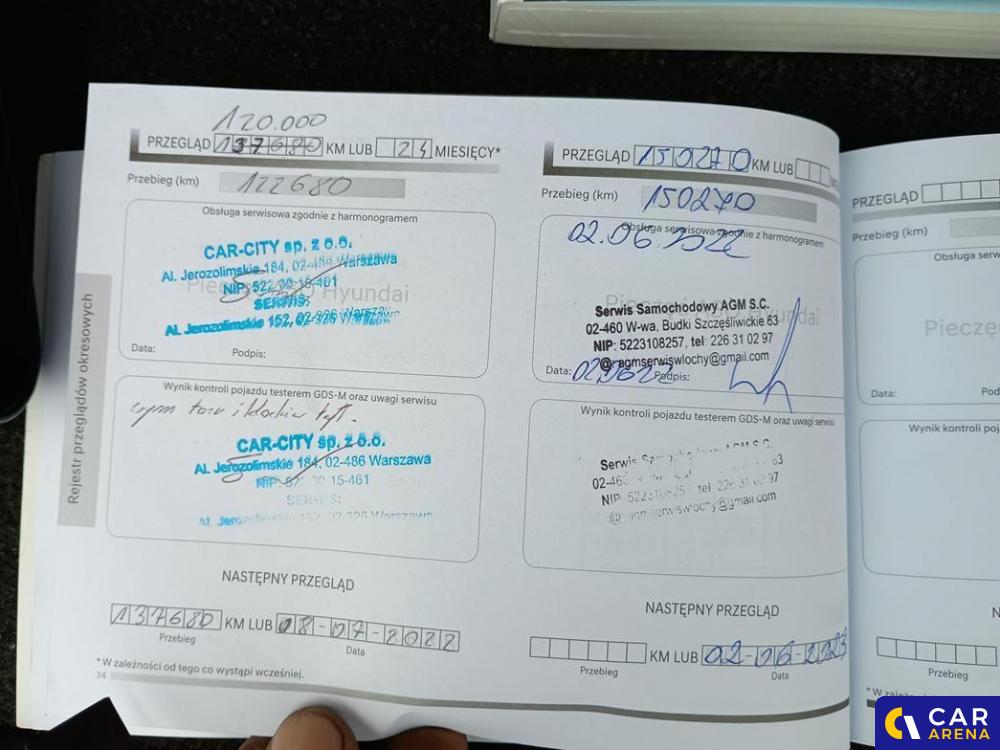 120.000
PRZEGLĄD 137680 KM LUB 24 MIESIĘCY*
Przebieg (km) 122680
Obsługa serwisowa zgodnie z harmonogramem
CAR-CITY sp. z o.o.
Al. Jerozolimskie 184, 02-486 Warszawa
NIP: 522-30-15-461
SERWIS:
Al. Jerozolimskie 152, 02-326 Warszawa
Data: Podpis:
Wynik kontroli pojazdu testerem GDS-M oraz uwagi serwisu
CAR-CITY sp. z o.o.
Al. Jerozolimskie 184, 02-486 Warszawa
NIP: 522 30 15-461
SERWIS:
Al. Jerozolimskie 152, 02-326 Warszawa
NASTĘPNY PRZEGLĄD
137680 KM LUB 08-07-2022
Przebieg Data
*W zależności od tego co wystąpi wcześniej.
34
Rejestr przeglądów okresowych
PRZEGLĄD 150270 KM LUB
Przebieg (km) 150270
Obsługa serwisowa zgodnie z harmonogramem
02.06.2022
Serwis Samochodowy AGM S.C.
02-460 W-wa, Budki Szczęśliwickie 63
NIP: 5223108257, tel: 226 31 02 97
@: agmserwiswlochy@gmail.com
Data: 020622 Podpis:
Wynik kontroli pojazdu testerem GDS-M oraz uwagi serwisu
Serwis AGM S.C.
02-460 63
NIP 5223108257 tel 226 31 02 97
@ agmserwiswlochy@gmail.com
NASTĘPNY PRZEGLĄD
KM LUB 02-06-2023
Przebieg Data
PRZEGLĄD
Przebieg (km)
Obsługa serw
Pieczę
Data:
Wynik kontroli po
N
Przebieg
*W za
CAR
ARENA